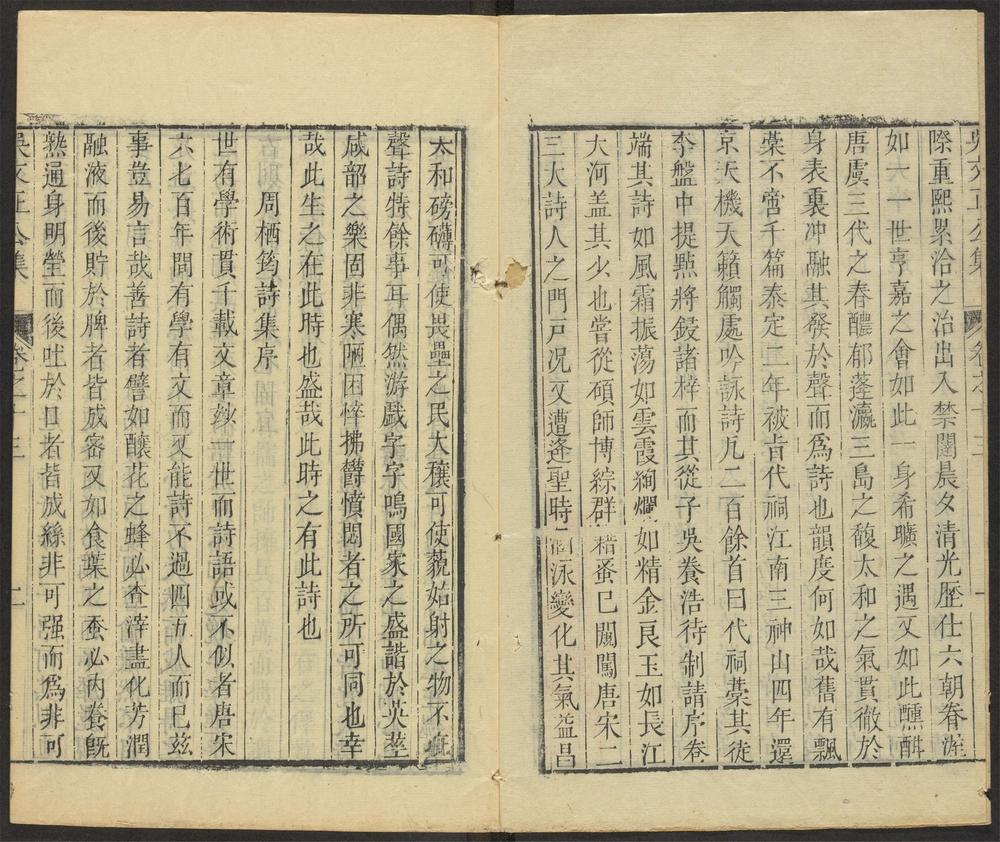 吳文正公集 卷之十三 一
際重熙累洽之治出入禁闥晨夕清光歷仕六朝眷渥
如六十世亨嘉之會如此一身希曠之遇又如此醺酣
唐虞三代之春醲郁蓬瀛三島之馥太和之氣貫徹於
身表裏冲融其發於聲而爲詩也韻度何如哉舊有飄
藁不啻千篇泰定二年被㫖代祠江南三神山四年還
京天機天籟觸處吟詠詩凡二百餘首曰代祠藁其徒
李盤中提點將鋟諸梓而其從子吳養浩待制請序卷
端其詩如風霜振蕩如雲霞絢爛如精金良玉如長江
大河盖其少也嘗從碩師博綜群籍蚤已闖闖唐宋二
三大詩人之門戸况又遭逢聖時涵泳變化其氣益昌
太和磅礴可使畏壘之民大穰可使藐姑射之物不疵
聲詩特餘事耳偶然游戲字字鳴國家之盛諧於英莖
咸韶之樂固非寒陋困悴拂欝憤悶者之所可同也幸
哉此生之在此時也盛哉此時之有此詩也
周栖筠詩集序
世有學術貫千載文章妙一世而詩語或不似者唐宋
六七百年間有學有文而又能詩不過四五人而已兹
事豈易言哉善詩者譬如釀花之蜂必渣滓盡化芳潤
融液而後貯於脾者皆成蜜又如食葉之蚕必内養旣
熟通身明瑩而後吐於口者皆成絲非可强而爲非可
吳文正公集 卷之十三 二